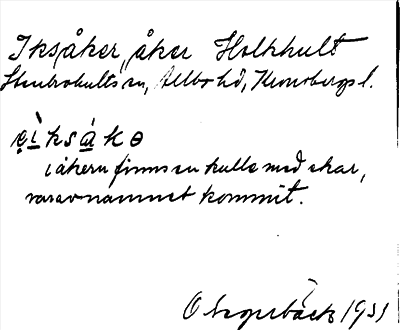 Iksåker, åker Holkhult
Stenbrohults sn, Allbo hd, Kronobergs l.
ęìksåkɵ
i åkern finns en kulle med ekar,
varav namnet kommit.
O 1931